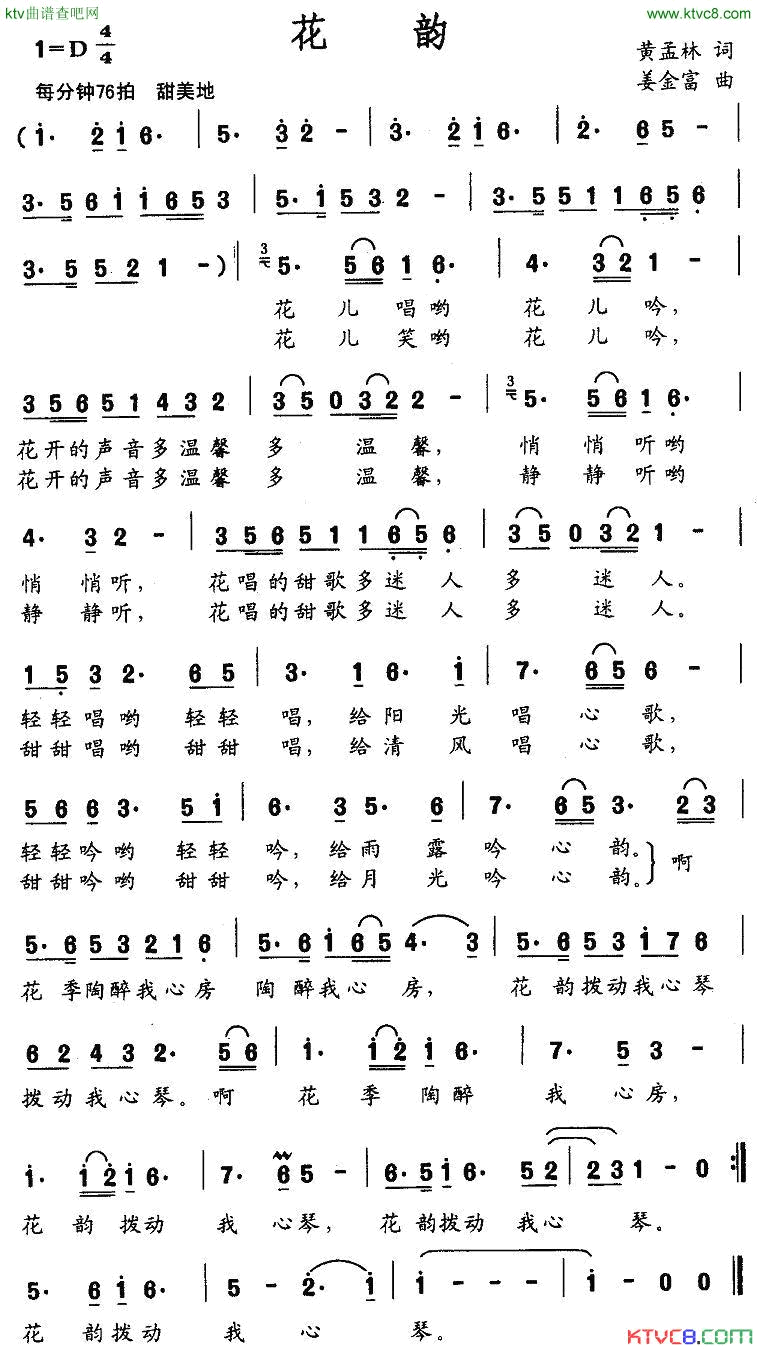 ktv曲谱查吧网
www.ktvc8.com
花 韵
1=D 4/4
黄孟林 词
每分钟76拍 甜美地
姜金富 曲
(1· 2 1 6· | 5· 3 2 - | 3· 2 1 6· | 2· 6 5 - |
3· 5 6 1 1 6 5 3 | 5· 1 5 3 2 - | 3· 5 5 1 1 6· 5· 6 |
3· 5 5 2 1 -) | 3 5· 5 6 1 6· | 4· 3 2 1 - |
花 儿 唱 哟 花 儿 吟,
花 儿 笑 哟 花 儿 吟,
3 5 6 5 1 4 3 2 | 3 5 0 3 2 2 - | 3 5· 5 6 1 6· |
花开的声音多温馨 多 温 馨, 悄 悄 听 哟
花开的声音多温馨 多 温 馨, 静 静 听 哟
4· 3 2 - | 3 5 6 5 1 1 6 5 6 | 3 5 0 3 2 1 - |
悄 悄 听, 花唱的甜歌多迷 人 多 迷 人。
静 静 听, 花唱的甜歌多迷 人 多 迷 人。
1 5 3 2· 6 5 | 3· 1 6· 1 | 7· 6 5 6 - |
轻轻唱哟 轻轻 唱, 给阳 光 唱 心 歌,
甜甜唱哟 甜甜 唱, 给清 风 唱 心 歌,
5 6 6 3· 5 1 | 6· 3 5· 6 | 7· 6 5 3· 2 3 |
轻轻吟哟 轻轻 吟, 给雨 露 吟 心 韵。} 啊
甜甜吟哟 甜甜 吟, 给月 光 吟 心 韵。
5· 6 5 3 2 1 6 | 5· 6 1 6 5 4· 3 | 5· 6 5 3 1 7 6 |
花 季陶醉我心房 陶 醉我心 房, 花 韵拨动我心琴
6 2 4 3 2· 5 6 | 1· 1 2 1 6· | 7· 5 3 - |
拨动我心琴。啊 花 季 陶醉 我 心房,
1· 1 2 1 6· | 7· 6 5 - | 6· 5 1 6· 5 2 | 2 3 1 - 0 :|
花 韵 拨动 我 心琴, 花 韵拨动 我心 琴。
5· 6 1 6· | 5 - 2· 1 | 1 - - - | 1 - 0 0 ‖
花 韵拨动 我 心 琴。
KTVC8.COM